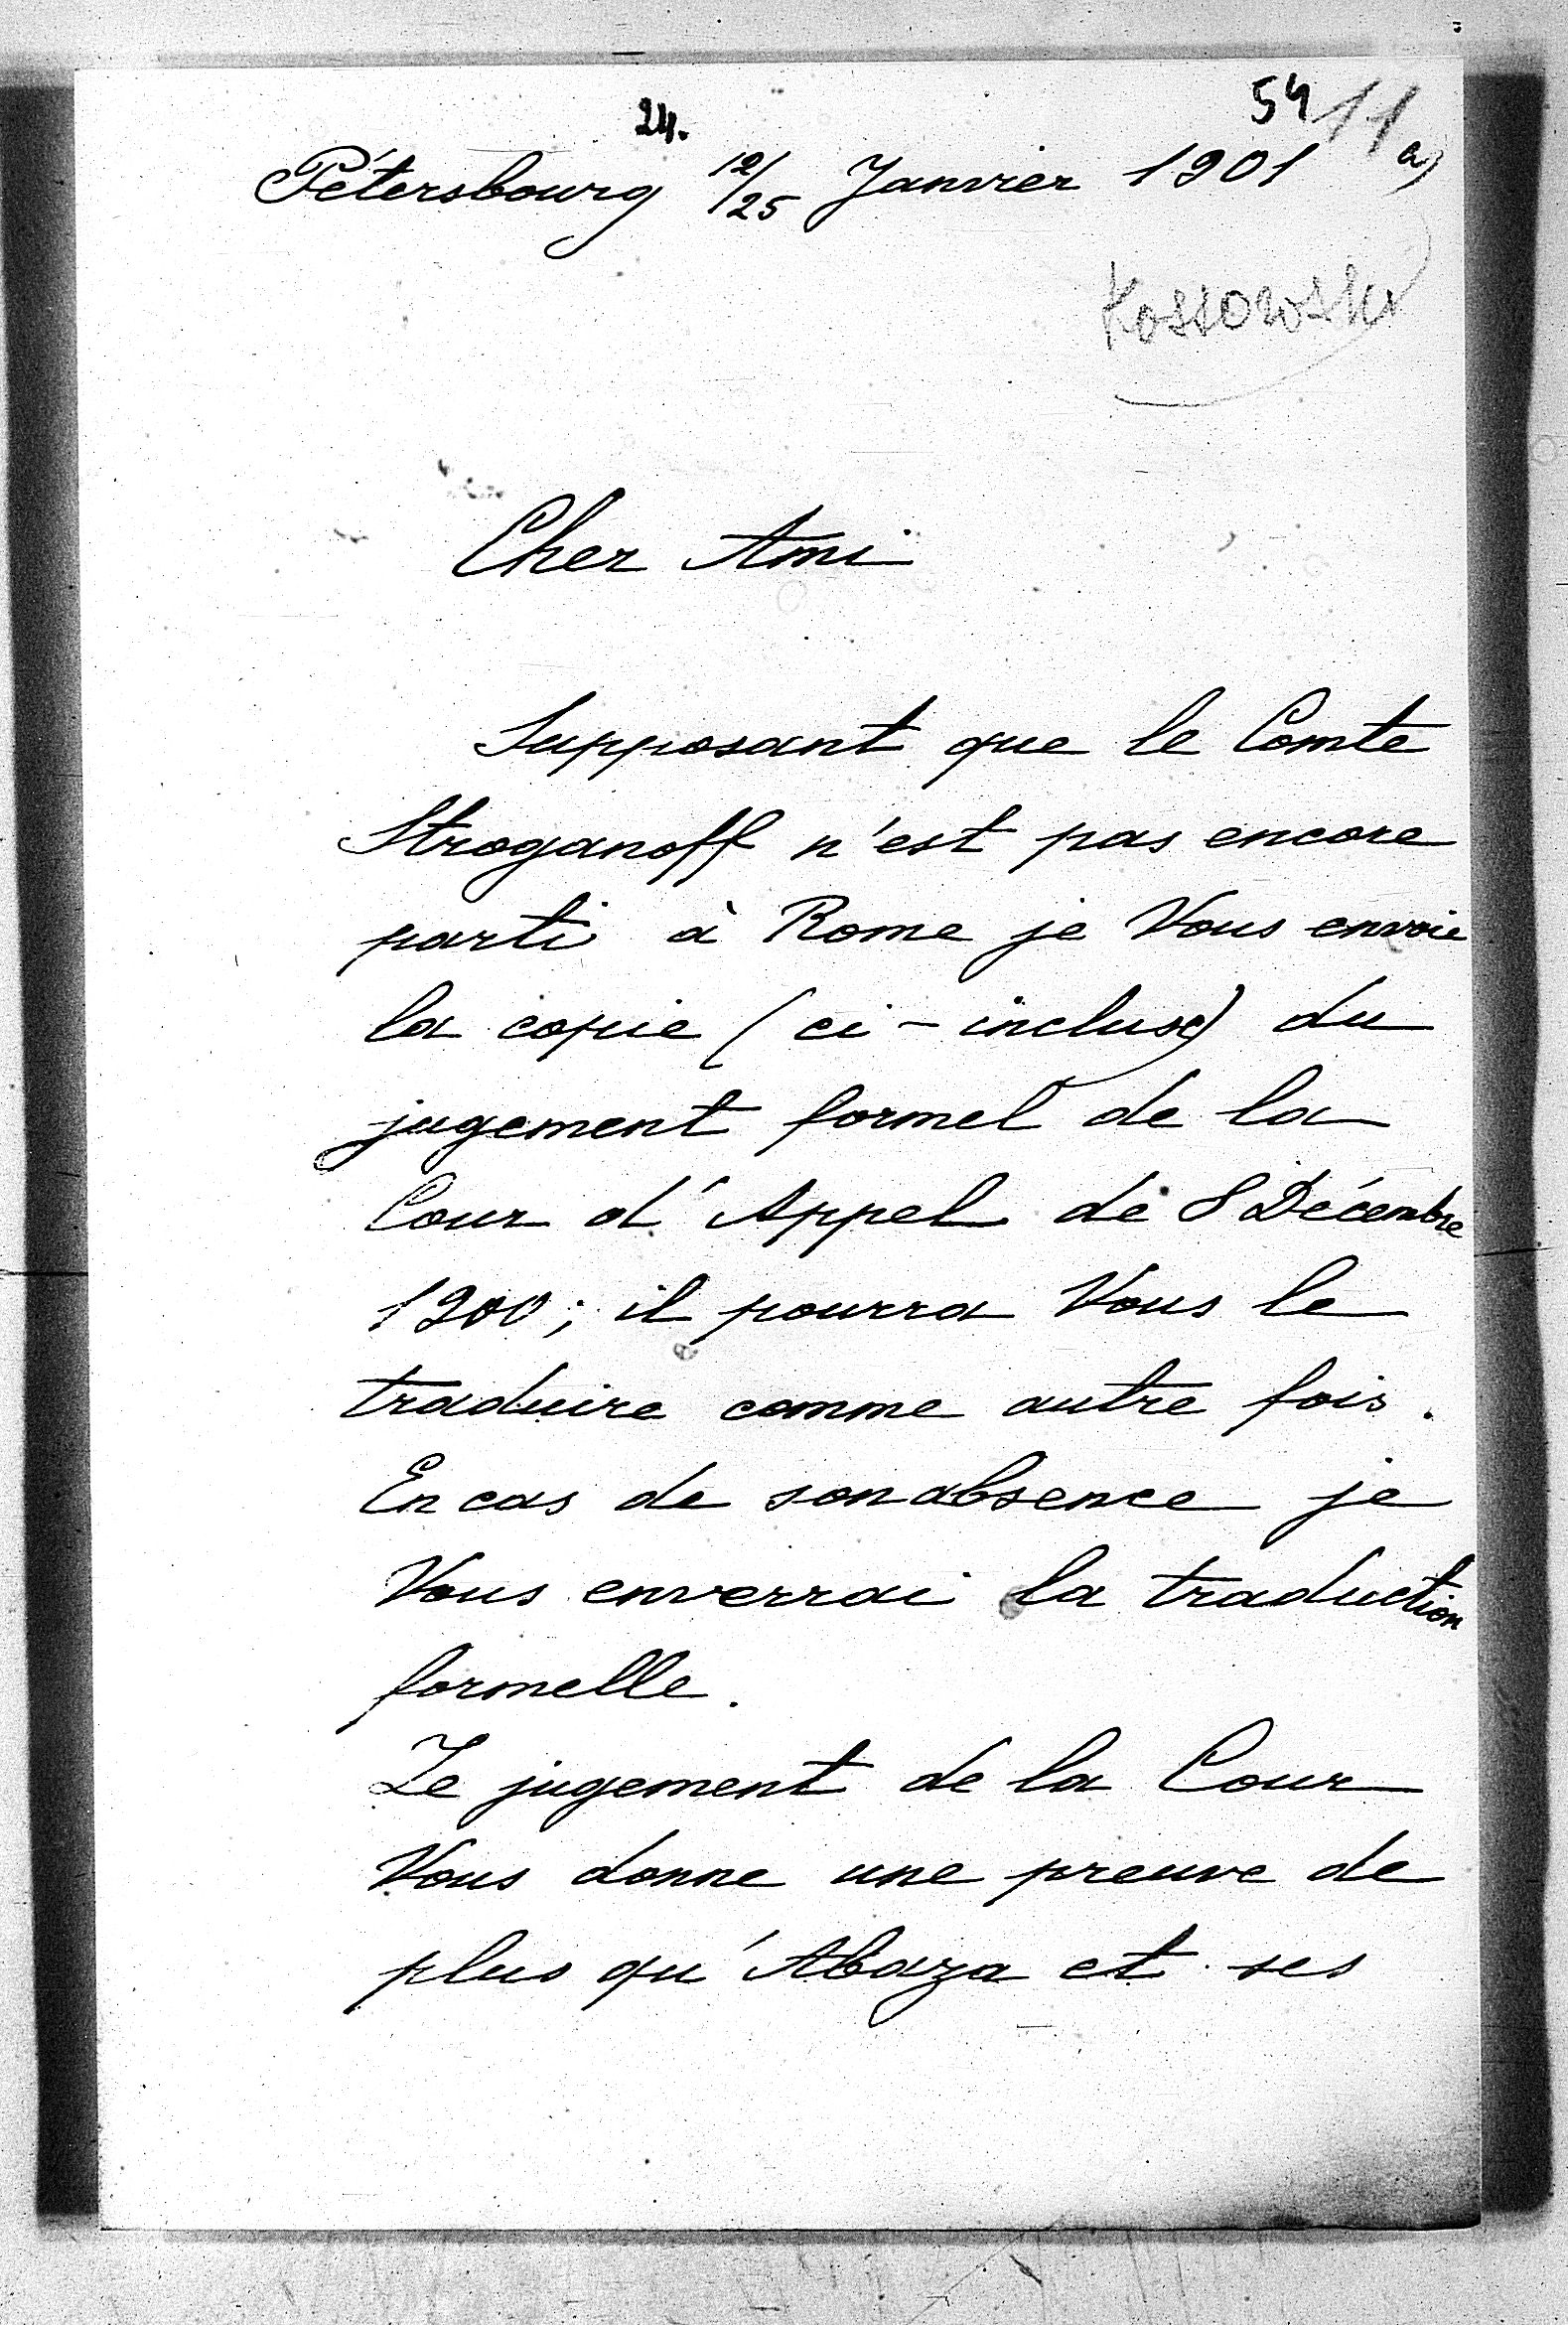 24.
54 11 a)
Pétersbourg 12/25 Janvier 1901
Kossowski
Cher Ami
Supposant que le Comte
Stroganoff n'est pas encore
parti à Rome je Vous envoie
la copie (ci-incluse) du
jugement formel de la
Cour d'Appel de 8 Décembre
1900; il pourra Vous le
traduire comme autre fois.
En cas de son absence je
Vous enverrai la traduction
formelle.
Le jugement de la Cour
Vous donne une preuve de
plus qu'Abaza et ses